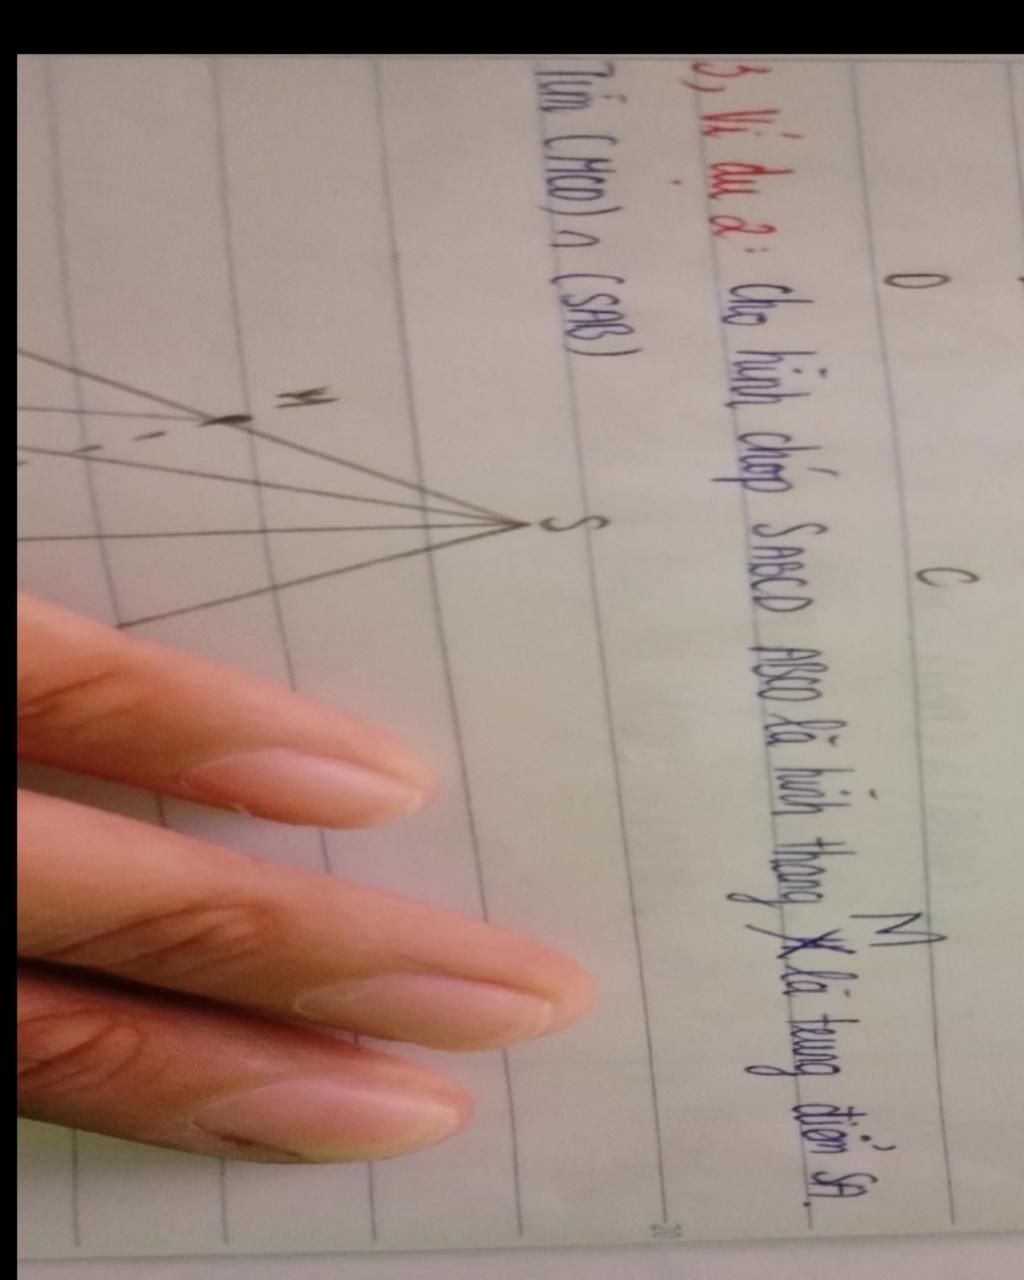 D C M
3, Ví dụ 2: Cho hình chóp SABCD ABCD là hình thang X là trung điểm SA.
Tìm (MCD) ∩ (SAB)
S
M
20